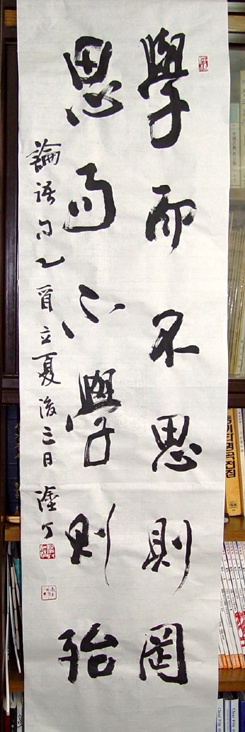 學而不思則罔
思而不學則殆
論語句乙酉立夏後三日